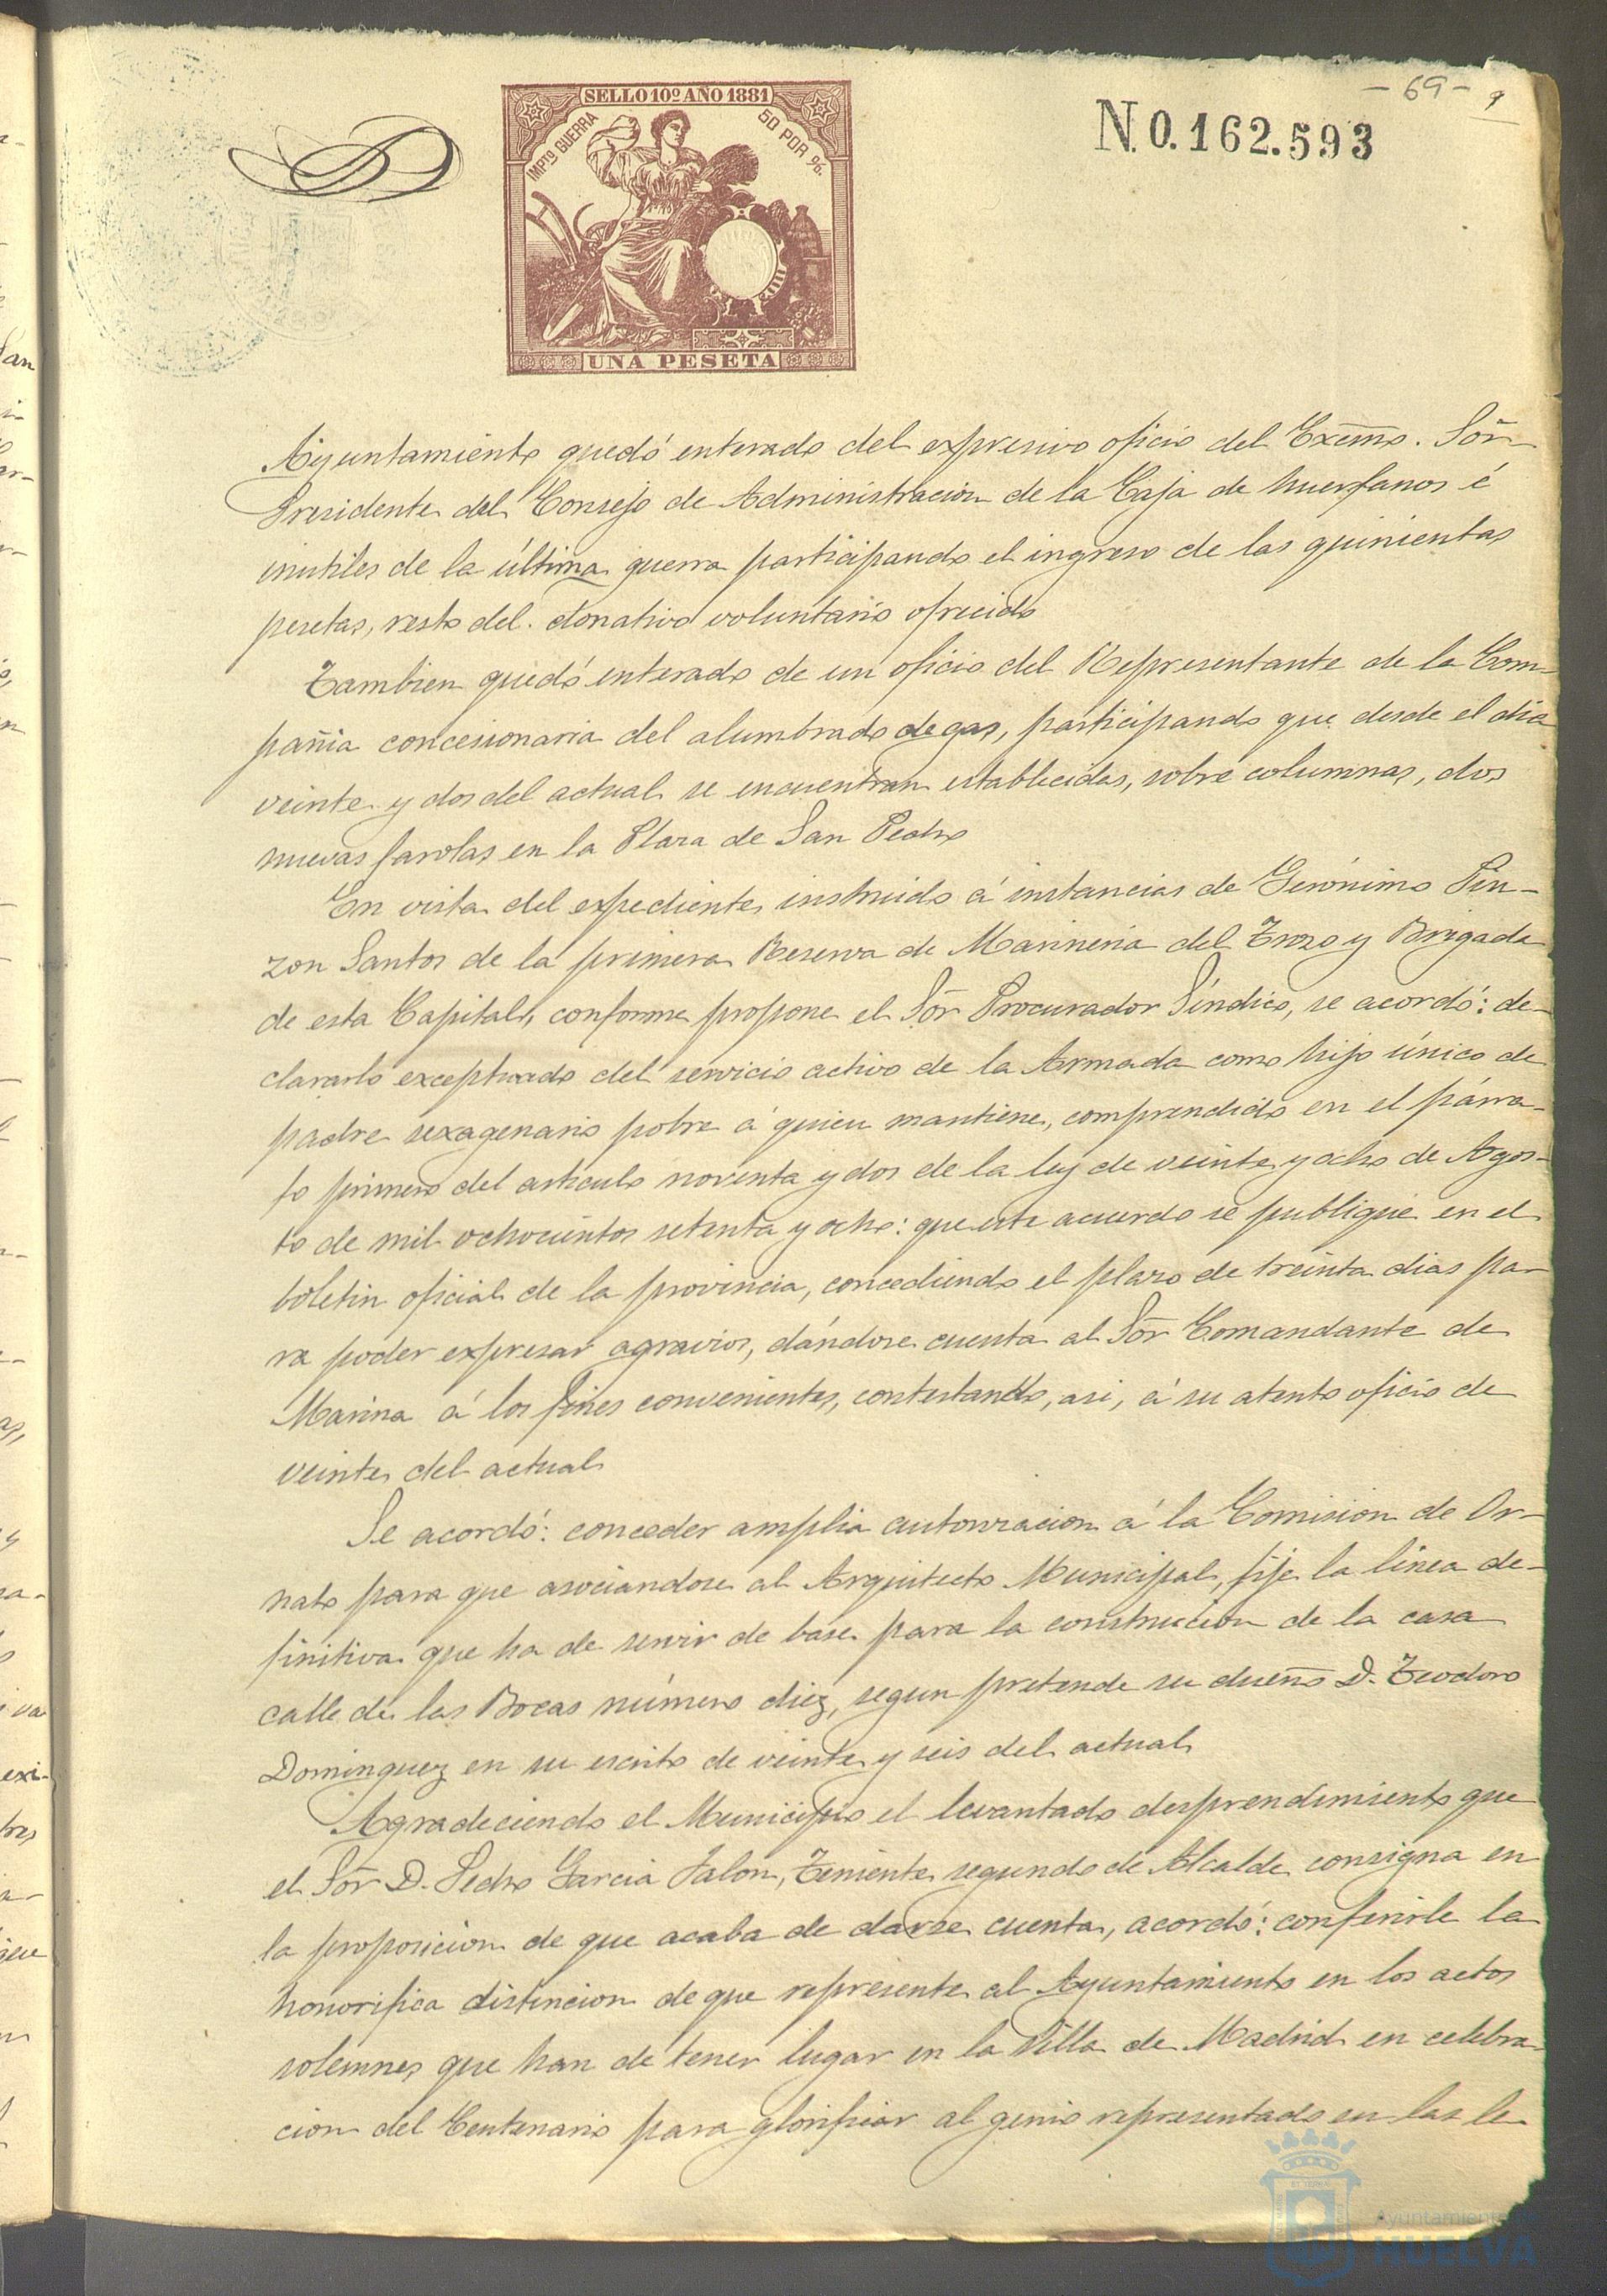 - 69 - 9
SELLO 10º AÑO 1881
IMPTO GUERRA
50 POR %.
N.0.162.593
UNA PESETA
Ayuntamiento quedó enterado del expresivo oficio del Excmo. Sõr
Presidente del Consejo de Administracion de la Caja de huerfanos é
inutiles de la última guerra participando el ingreso de las quinientas
pesetas, resto del donativo voluntario ofrecido
Tambien quedó enterado de un oficio del Representante de la Com-
pañia concesionaria del alumbrado de gas, participando que desde el dia
veinte y dos del actual se encuentran establecidas, sobre columnas, dos
nuevas farolas en la Plaza de San Pedro
En vista del expediente instruido á instancias de Gerónimo Pin-
zon Santos de la primera Reserva de Marineria del Trozo y Brigada
de esta Capital, conforme propone el Sõr Procurador Síndico, se acordó: de-
clararlo exceptuado del servicio activo de la Armada como hijo único de
padre sexagenario pobre á quien mantiene, comprendido en el párra-
fo primero del articulo noventa y dos de la ley de veinte y ocho de Agos-
to de mil ochocientos setenta y ocho: que este acuerdo se publique en el
boletin oficial de la provincia, concediendo el plazo de treinta dias pa-
ra poder expresar agravios, dándose cuenta al Sõr Comandante de
Marina á los fines convenientes, contestando, asi, á su atento oficio de
veinte del actual
Se acordó: conceder amplia autorizacion á la Comision de Or-
nato para que asociandose al Arquitecto Municipal, fije la linea de-
finitiva que ha de servir de base para la construccion de la casa
calle de las Bocas número diez, segun pretende su dueño D. Teodoro
Dominguez en su escrito de veinte y seis del actual
Agradeciendo el Municipio el levantado desprendimiento que
el Sõr D. Pedro Garcia Jalon, Teniente segundo de Alcalde consigna en
la proposicion de que acaba de darse cuenta, acordó: conferirle la
honorifica distincion de que represente al Ayuntamiento en los actos
solemnes que han de tener lugar en la Villa de Madrid en celebra-
cion del Centenario para glorificar al genio representado en las le-
Ayuntamiento de
HUELVA